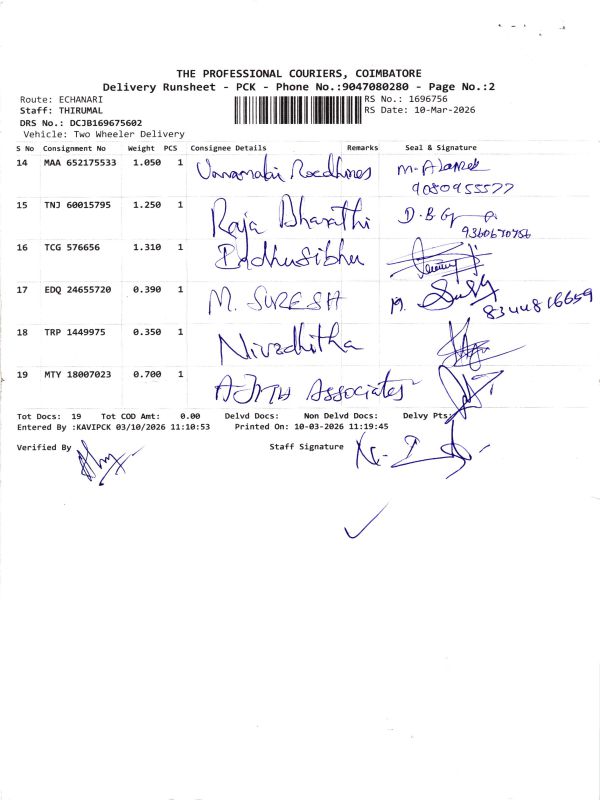 THE PROFESSIONAL COURIERS, COIMBATORE
Delivery Runsheet - PCK - Phone No.:9047080280 - Page No.:2
Route: ECHANARI
RS No.: 1696756
Staff: THIRUMAL
RS Date: 10-Mar-2026
DRS No.: DCJB169675602
Vehicle: Two Wheeler Delivery
S No Consignment No Weight PCS Consignee Details Remarks Seal & Signature
14 MAA 652175533 1.050 1
9080955577
15 TNJ 60015795 1.250 1 Raja Bharathi D.B
9360670756
16 TCG 576656 1.310 1
17 EDQ 24655720 0.390 1 M. SURESH M.
8344816659
18 TRP 1449975 0.350 1 Nivadhitha
19 MTY 18007023 0.700 1 Associates
Tot Docs: 19 Tot COD Amt: 0.00 Delvd Docs: Non Delvd Docs: Delvy Pts:
Entered By :KAVIPCK 03/10/2026 11:10:53 Printed On: 10-03-2026 11:19:45
Verified By Staff Signature